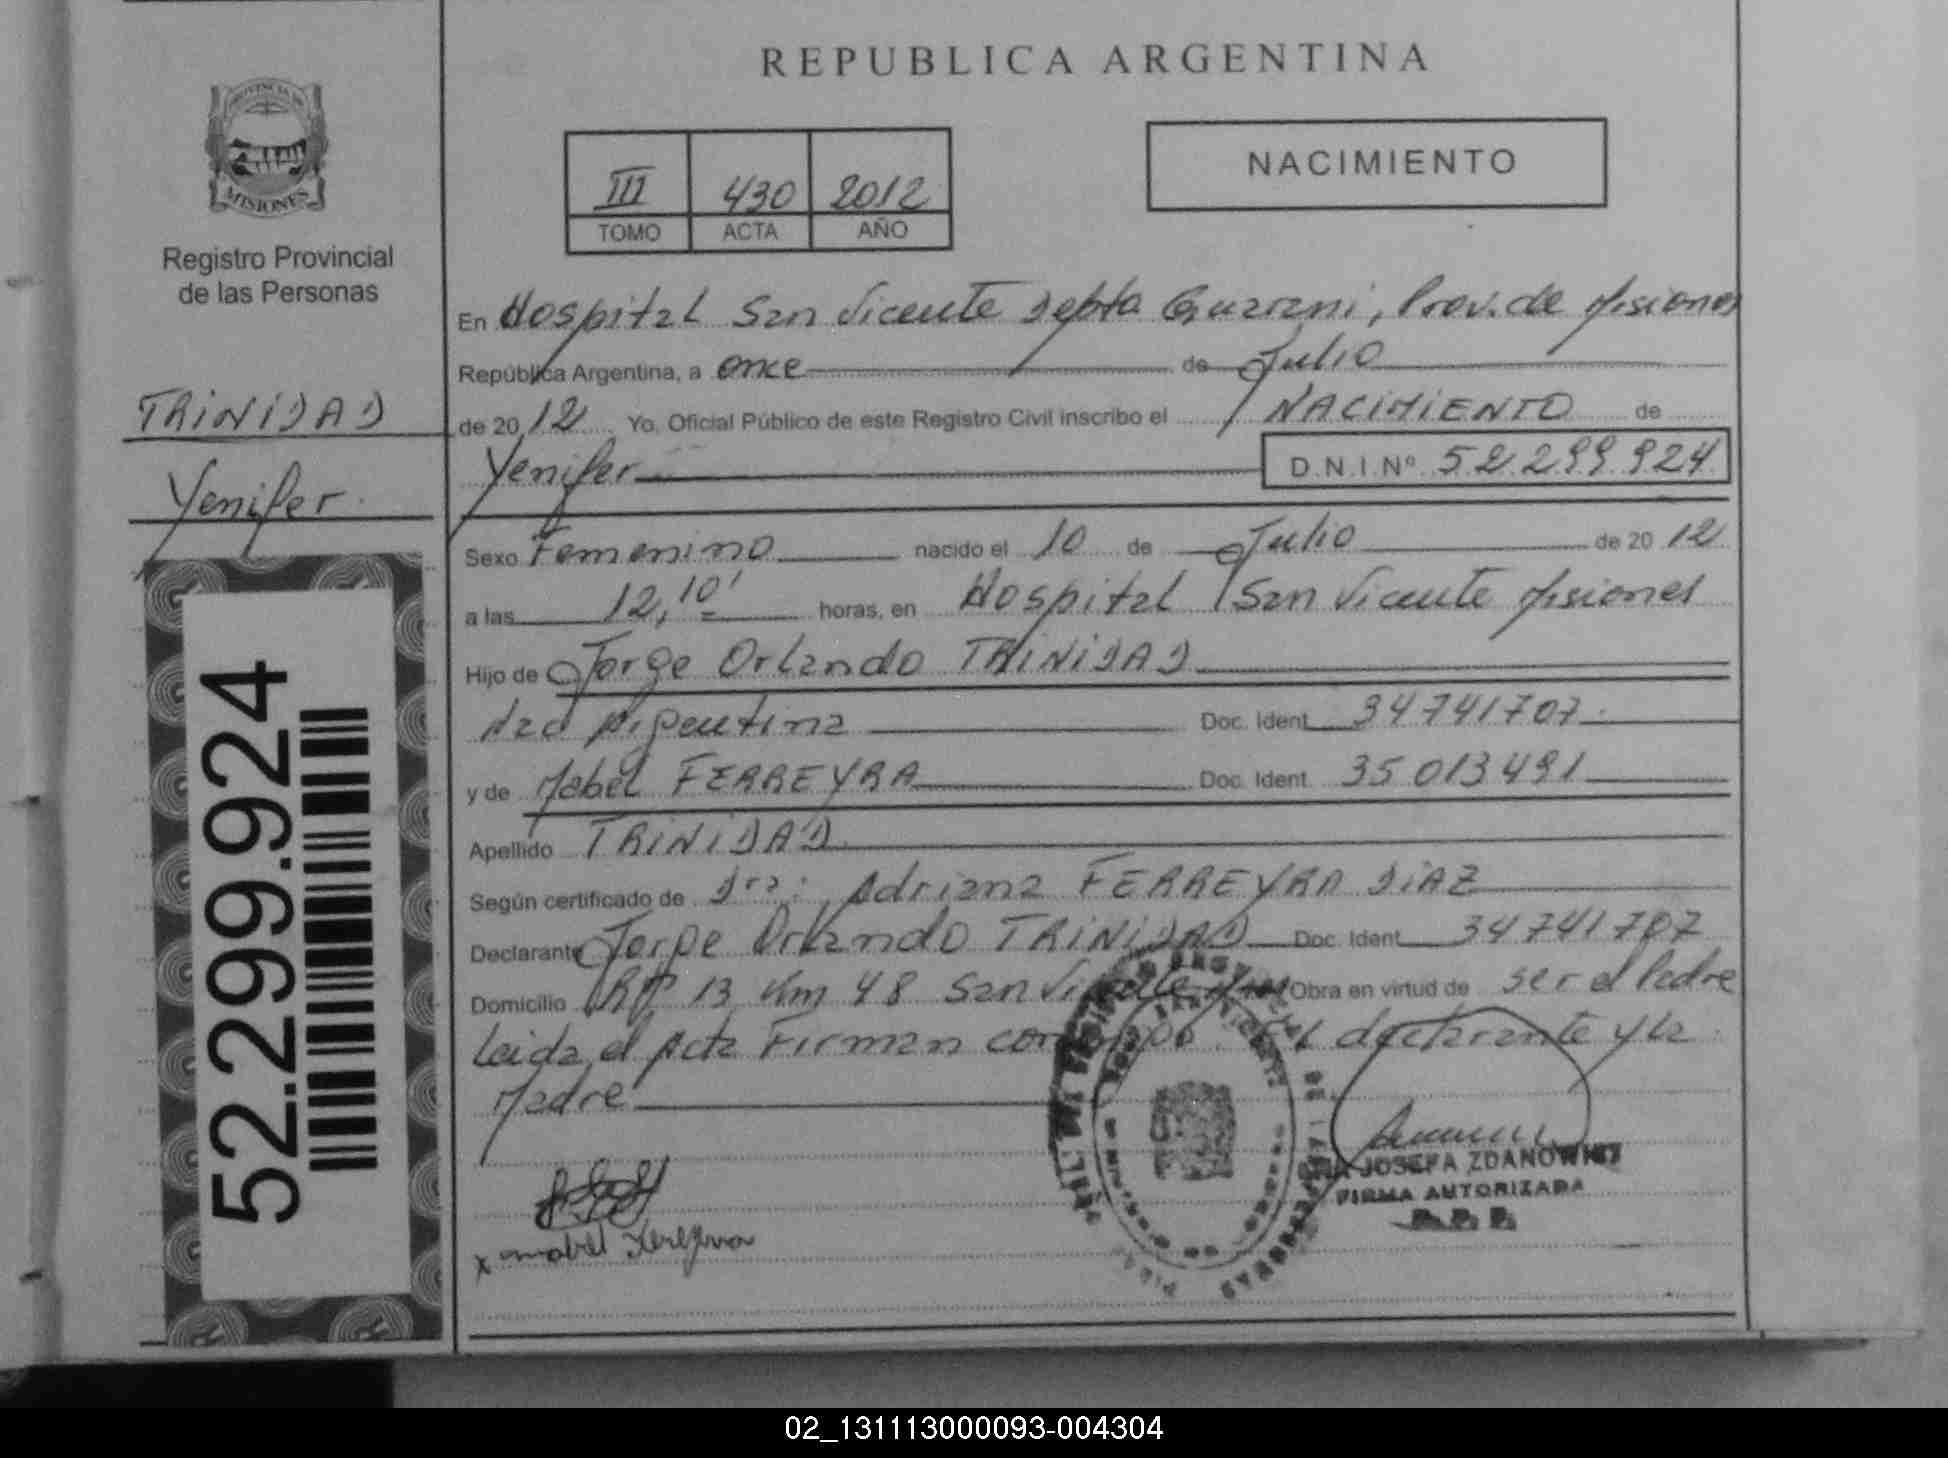 REPUBLICA ARGENTINA
PROVINCIA DE
MISIONES
Registro Provincial
de las Personas
III 430 2012
TOMO ACTA AÑO
NACIMIENTO
TRINIDAD
Yenifer
52.299.924
En Hospital San Vicente Depto Guarani, Prov. de Misiones
República Argentina, a once de Julio
de 2012 Yo, Oficial Público de este Registro Civil inscribo el NACIMIENTO de
Yenifer D.N.I. Nº 52.299.924
Sexo Femenino nacido el 10 de Julio de 2012
a las 12,10' horas, en Hospital San Vicente Misiones
Hijo de Jorge Orlando TRINIDAD
Nac Argentina Doc. Ident 34741707
y de Mabel FERREYRA Doc. Ident 35013491
Apellido TRINIDAD
Según certificado de Dra: Adriana FERREYRA DIAZ
Declarante Jorge Orlando TRINIDAD Doc. Ident 34741707
Domicilio RP 13 Km 48 San Vicente Obra en virtud de ser el Padre
Leida el Acta Firman el declarante y la
Madre
x mabel Ferreyra
JOSEFA ZDANOWICZ
FIRMA AUTORIZADA
R.P.P.
02_131113000093-004304